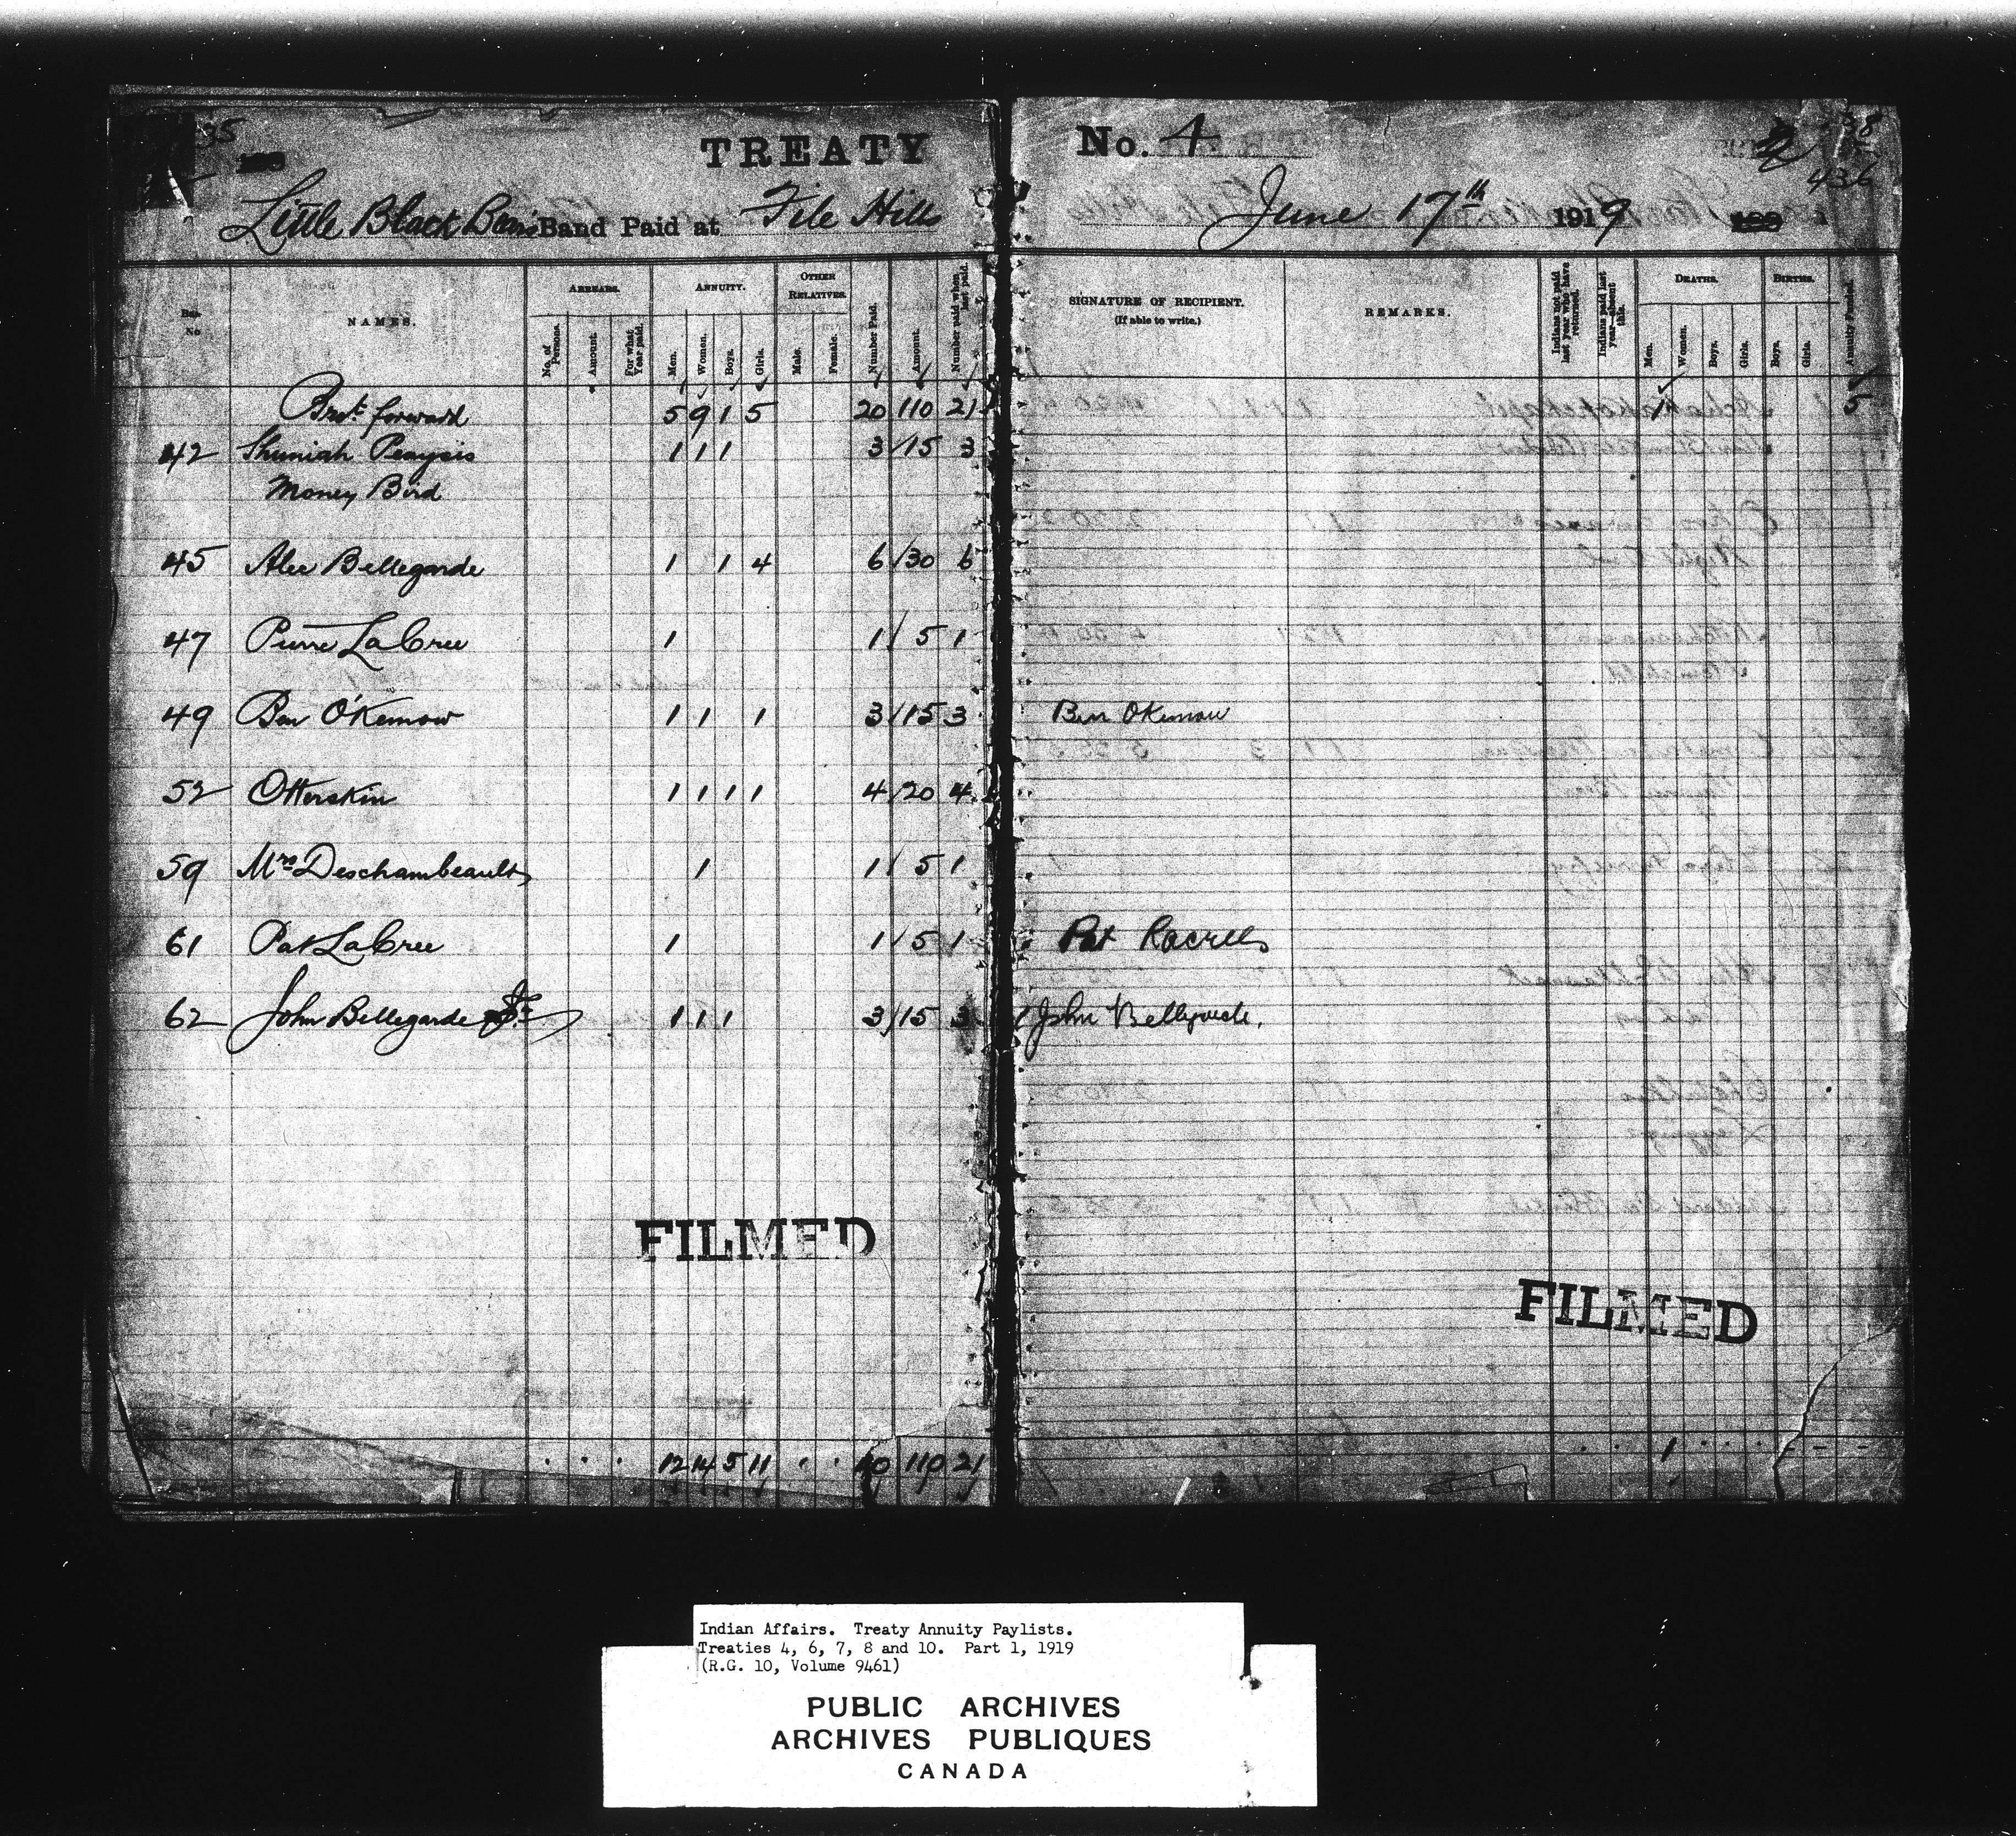 35
TREATY No. 4
436
Little Black Bear's Band Paid at File Hills June 17th 1919
No
NAMES.
ARREARS.
No. of Persons.
Amount.
For what Year paid.
ANNUITY.
Men.
Women.
Boys.
Girls.
OTHER RELATIVES.
Male.
Female.
Number Paid.
Amount.
Number paid when last paid.
SIGNATURE OF RECIPIENT.
(If able to write.)
REMARKS.
Indians not paid last year who have returned.
Indians paid last year—absent this.
DEATHS.
Men.
Women.
Boys.
Girls.
BIRTHS.
Boys.
Girls.
Annuity Funded.
Brot. forward 5 9 1 5 20 110 21 1
42 Shuniah Peaysis 1 1 1 3 15 3
Money Bird
45 Alec Bellegarde 1 1 4 6 30 6
47 Pierre LaCree 1 1 5 1
49 Ben O'Kemow 1 1 1 3 15 3 Ben OKemow
52 Otterskin 1 1 1 1 4 20 4
59 Mrs Deschambeault 1 1 5 1
61 Pat LaCree 1 1 5 1 Pat
62 John Bellegarde Jr. 1 1 1 3 15 3 John
FILMED
FILMED
12 14 5 11 40 110 21 1
Indian Affairs. Treaty Annuity Paylists.
Treaties 4, 6, 7, 8 and 10. Part 1, 1919
(R.G. 10, Volume 9461)
PUBLIC ARCHIVES
ARCHIVES PUBLIQUES
CANADA